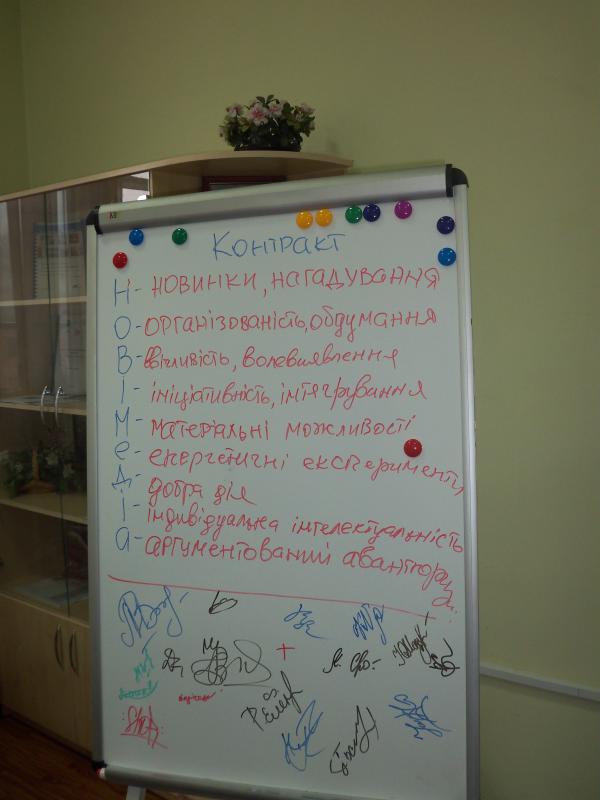 Контракт
Н - новинки, нагадування
О - організованість, обдумання
В - ввічливість, волевиявлення
І - ініціативність, інтягрування
М - матеріальні можливості
е - енергетичні експерименти
Д - добра дія
І - індивідуальна інтелектуальність
а - аргументований авантюризм